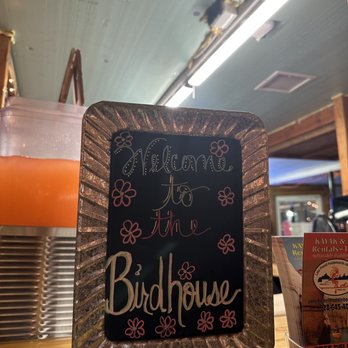 Welcome
to
the
Birdhouse
KAYAK &
Rentals